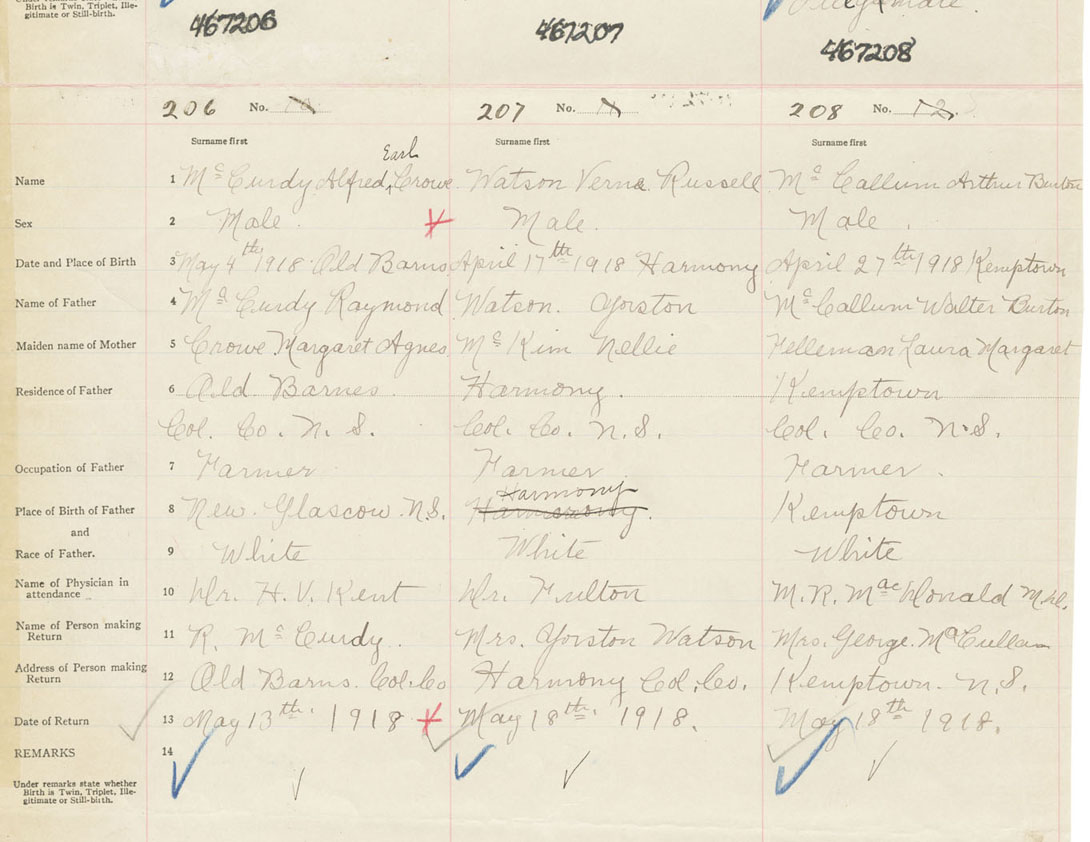 Birth is Twin, Triplet, Ille-
gitimate or Still-birth.
467206 467207 467208
206 No. 207 No. 208 No. 12
Surname first Surname first Surname first
Earl
Name 1 Mc Curdy Alfred Crowe Watson Verne Russell Mc Callum Arthur Burton
Sex 2 Male Male. Male
Date and Place of Birth 3 May 4th 1918 Old Barns April 17th 1918 Harmony April 27th 1918 Kemptown
Name of Father 4 Mc Curdy Raymond Watson. Yorston Mc Callum Walter Burton
Maiden name of Mother 5 Crowe Margaret Agnes Mc Kim Nellie Laura Margaret
Residence of Father 6 Old Barnes Harmony. Kemptown
Col. Co. N. S. Col. Co. N.S. Col. Co. N.S.
Occupation of Father 7 Farmer Farmer Farmer.
Harmony
Place of Birth of Father 8 New. Glascow. N.S. Kemptown
and
Race of Father. 9 White White White
Name of Physician in
attendance 10 Dr. H. V. Kent Dr. Fulton M. R. Mac Donald M.D.
Name of Person making
Return 11 R. Mc Curdy. Mrs. Yorston Watson Mrs. George.
Address of Person making
Return 12 Old Barns. Col. Co Harmony Col. Co. Kemptown. N.S.
Date of Return 13 May 13th. 1918 May 18th. 1918. May 18th 1918.
REMARKS 14
Under remarks state whether
Birth is Twin, Triplet, Ille-
gitimate or Still-birth.